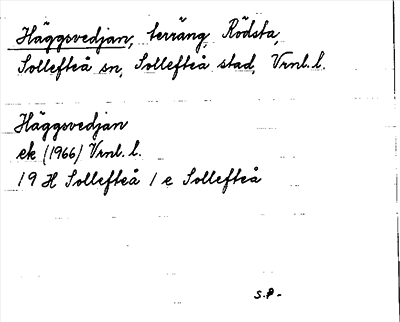 Häggsvedjan, terräng, Rödsta,
Sollefteå sn, Sollefteå stad, Vrnl. l.
Häggsvedjan
ek (1966) Vrnl. l.
19 H Sollefteå 1 e Sollefteå
S.P.-